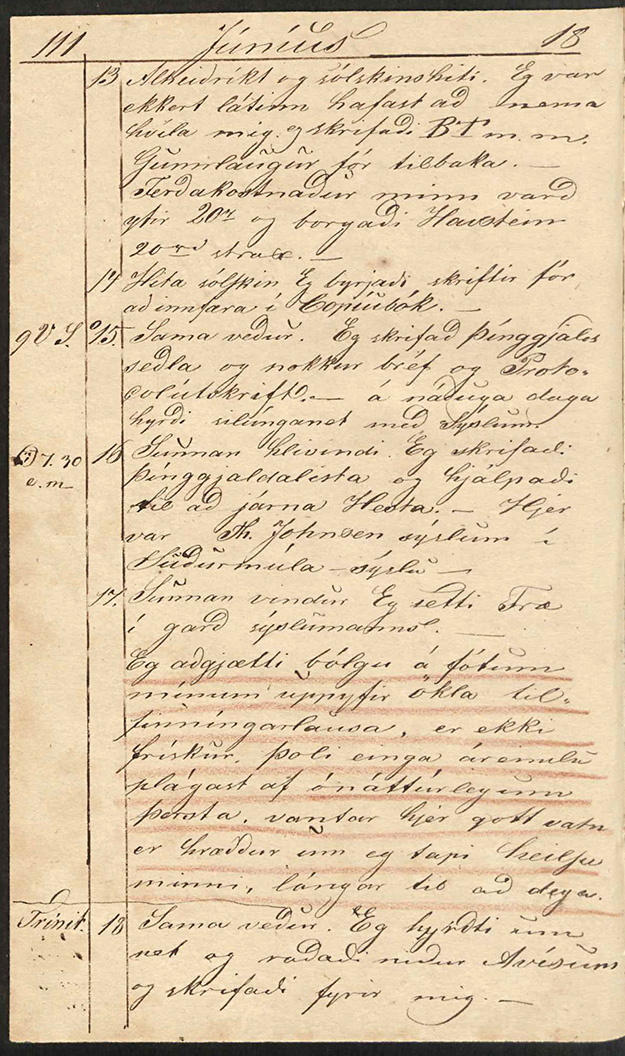 111 Júníus 18
13 Alheidríkt og sólskinshiti. Eg var
ekkert látinn hafast ad nema
hvíla mig. eg skrifadi BT m. m.
Gunnlaugur fór tilbaka. —
Ferdakostnadur minn vard
yfir 20rd og borgadi Havstein
20rd strax. —
14 Hita sólskin Eg byrjadi skriftir fór
ad innfæra í Copiubók. —
9 V S. 15. Sama vedur. Eg skrifad þinggjalds
sedla og nokkur bréf og Proto-
colútskrift. — á náduga daga
hyrdi silúnganet med Syslum
7.30 16 Sunnan hlivindi. Eg skrifadi
e.m— þinggjaldalista og hjálpadi
til ad járna Hesta. — Hjér
var Th. Johnsen sýslum í
Sudurmúla-sýslu —
17. Sunnan vindur Eg setti Træ
í gard sýslumanns. —
Eg adgjætti bólgu á fótum
mínum uppyfir ökla til-
finníngarlausa, er ekki
frískur. þoli einga áreinslu
plágast af ónáttúrlegum
þorsta, vantar hjér gott vatn
er hræddur um eg tapi heilsu
minni, lángar til ad deya.
Trínit. 18 Sama vedur. Eg hyrdti um
net og radadi nidur Avísum
og skrifadi fyrir mig. —